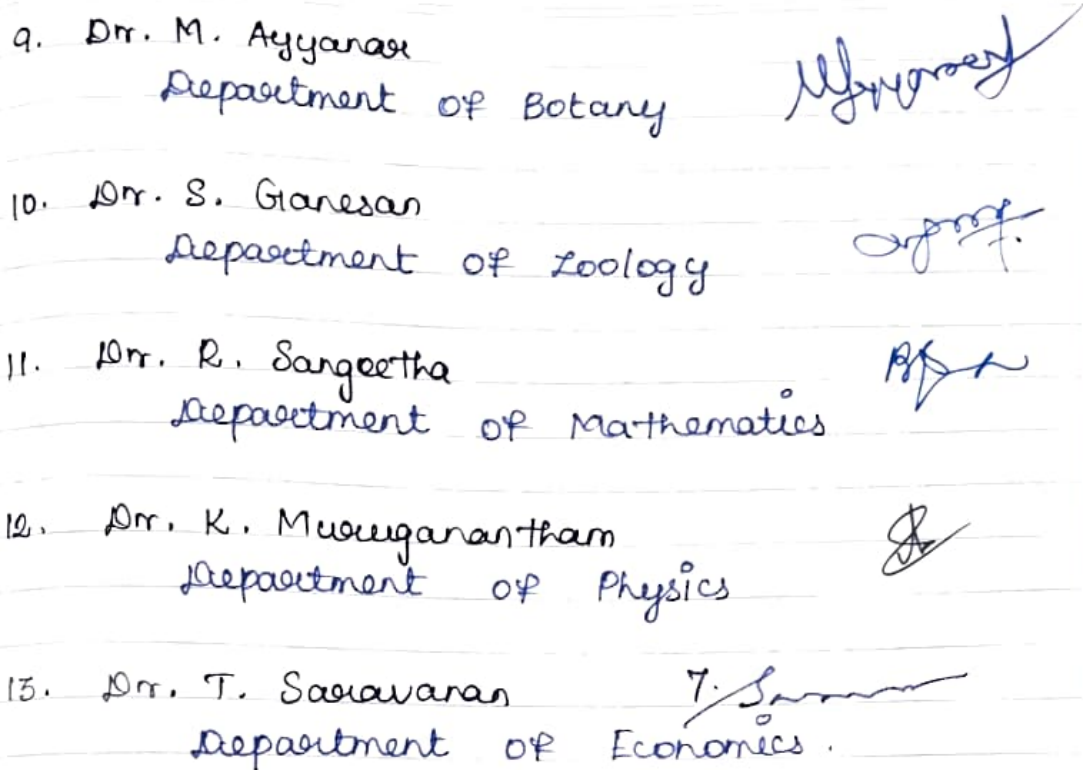 9. Dr. M. Ayyanar
Department of Botany
10. Dr. S. Ganesan
Department of Zoology
11. Dr. R. Sangeetha
Department of Mathematics
12. Dr. K. Muruganantham
Department of Physics
13. Dr. T. Saravanan
Department of Economics.